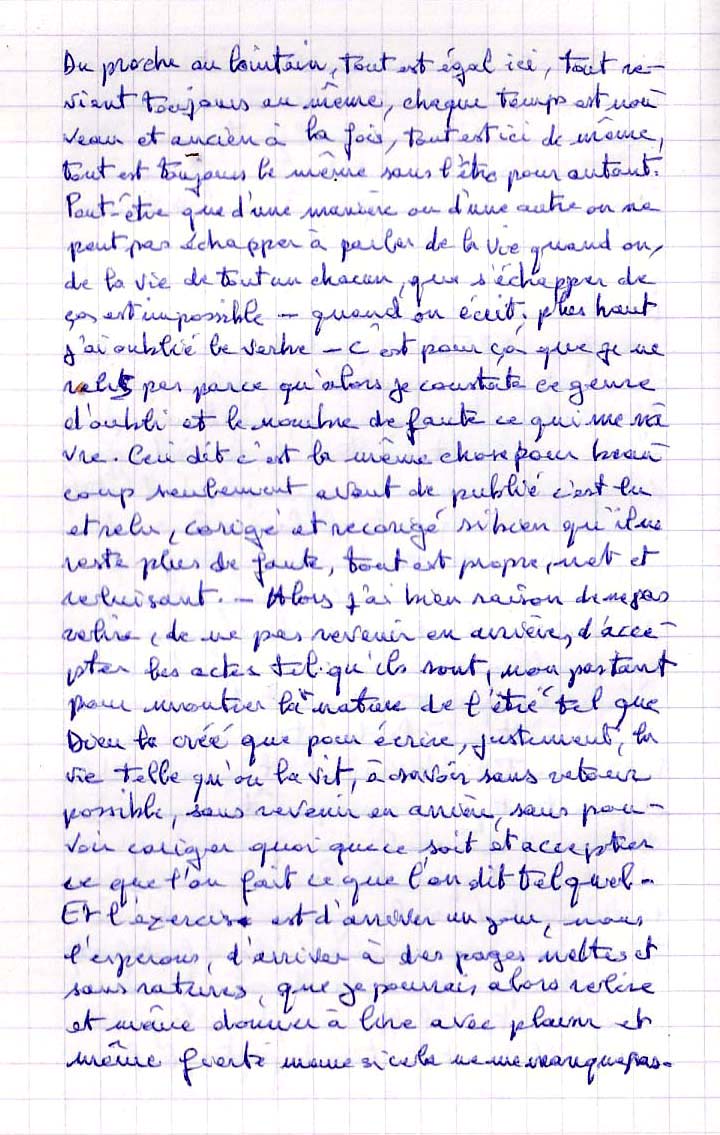 Du proche au lointain, tout est égal ici, tout re-
vient toujours au même, chaque temps est nou
veau et ancien à la fois, tout est ici de même,
tout est toujours le même sans l'être pour autant.
Peut-être que d'une manière ou d'une autre on ne
peut pas échapper à parler de la vie quand on,
de la vie de tout un chacun, que s'échapper de
ça, est impossible – quand on écrit. plus haut
j'ai oublié le verbe – C'est pour ça que je ne
relis pas parce qu'alors je constate ce genre
d'oubli et le nombre de faute ce qui me na
vre. Ceci dit c'est la même chose pour beau
coup seulement avant de publié c'est lu
et relu, corigé et recorigé si bien qu'il ne
reste plus de faute, tout est propre, net et
reluisant. – Alors j'ai bien raison de ne pas
relire, de ne pas revenir en arrière, d'acce-
pter les actes tel qu'ils sont, non pas tant
pour montrer la nature de l'être tel que
Dieu l'a créé que pour écrire, justement, la
vie telle qu'on la vit, à savoir sans retour
possible, sans revenir en arrière, sans pou-
voir coriger quoi que ce soit et accepter
ce que l'on fait ce que l'on dit tel quel -
Et l'exercise est d'arriver un jour, nous
l'esperons, d'arriver à des pages nettes et
sans ratures, que je pourrais alors relire
et même donner à lire avec plaisir et
même fierté même si cela ne me manque pas.